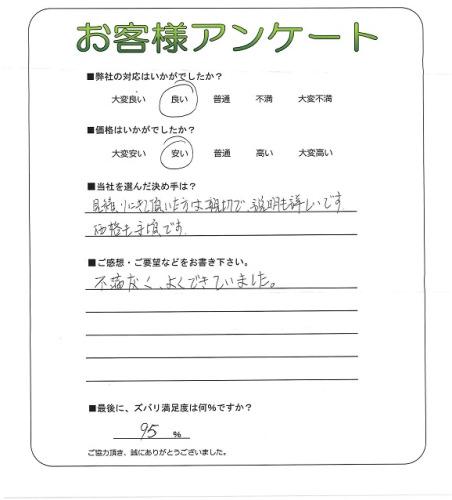 お客様アンケート
■弊社の対応はいかがでしたか？
大変良い 良い 普通 不満 大変不満
■価格はいかがでしたか？
大変安い 安い 普通 高い 大変高い
■当社を選んだ決め手は？
見積りにきて頂いた方は親切で、説明も詳しいです
価格も手頃です.
■ご感想・ご要望などをお書き下さい。
不満なく、よくできていました。
■最後に、ズバリ満足度は何％ですか？
95 ％
ご協力頂き、誠にありがとうございました。